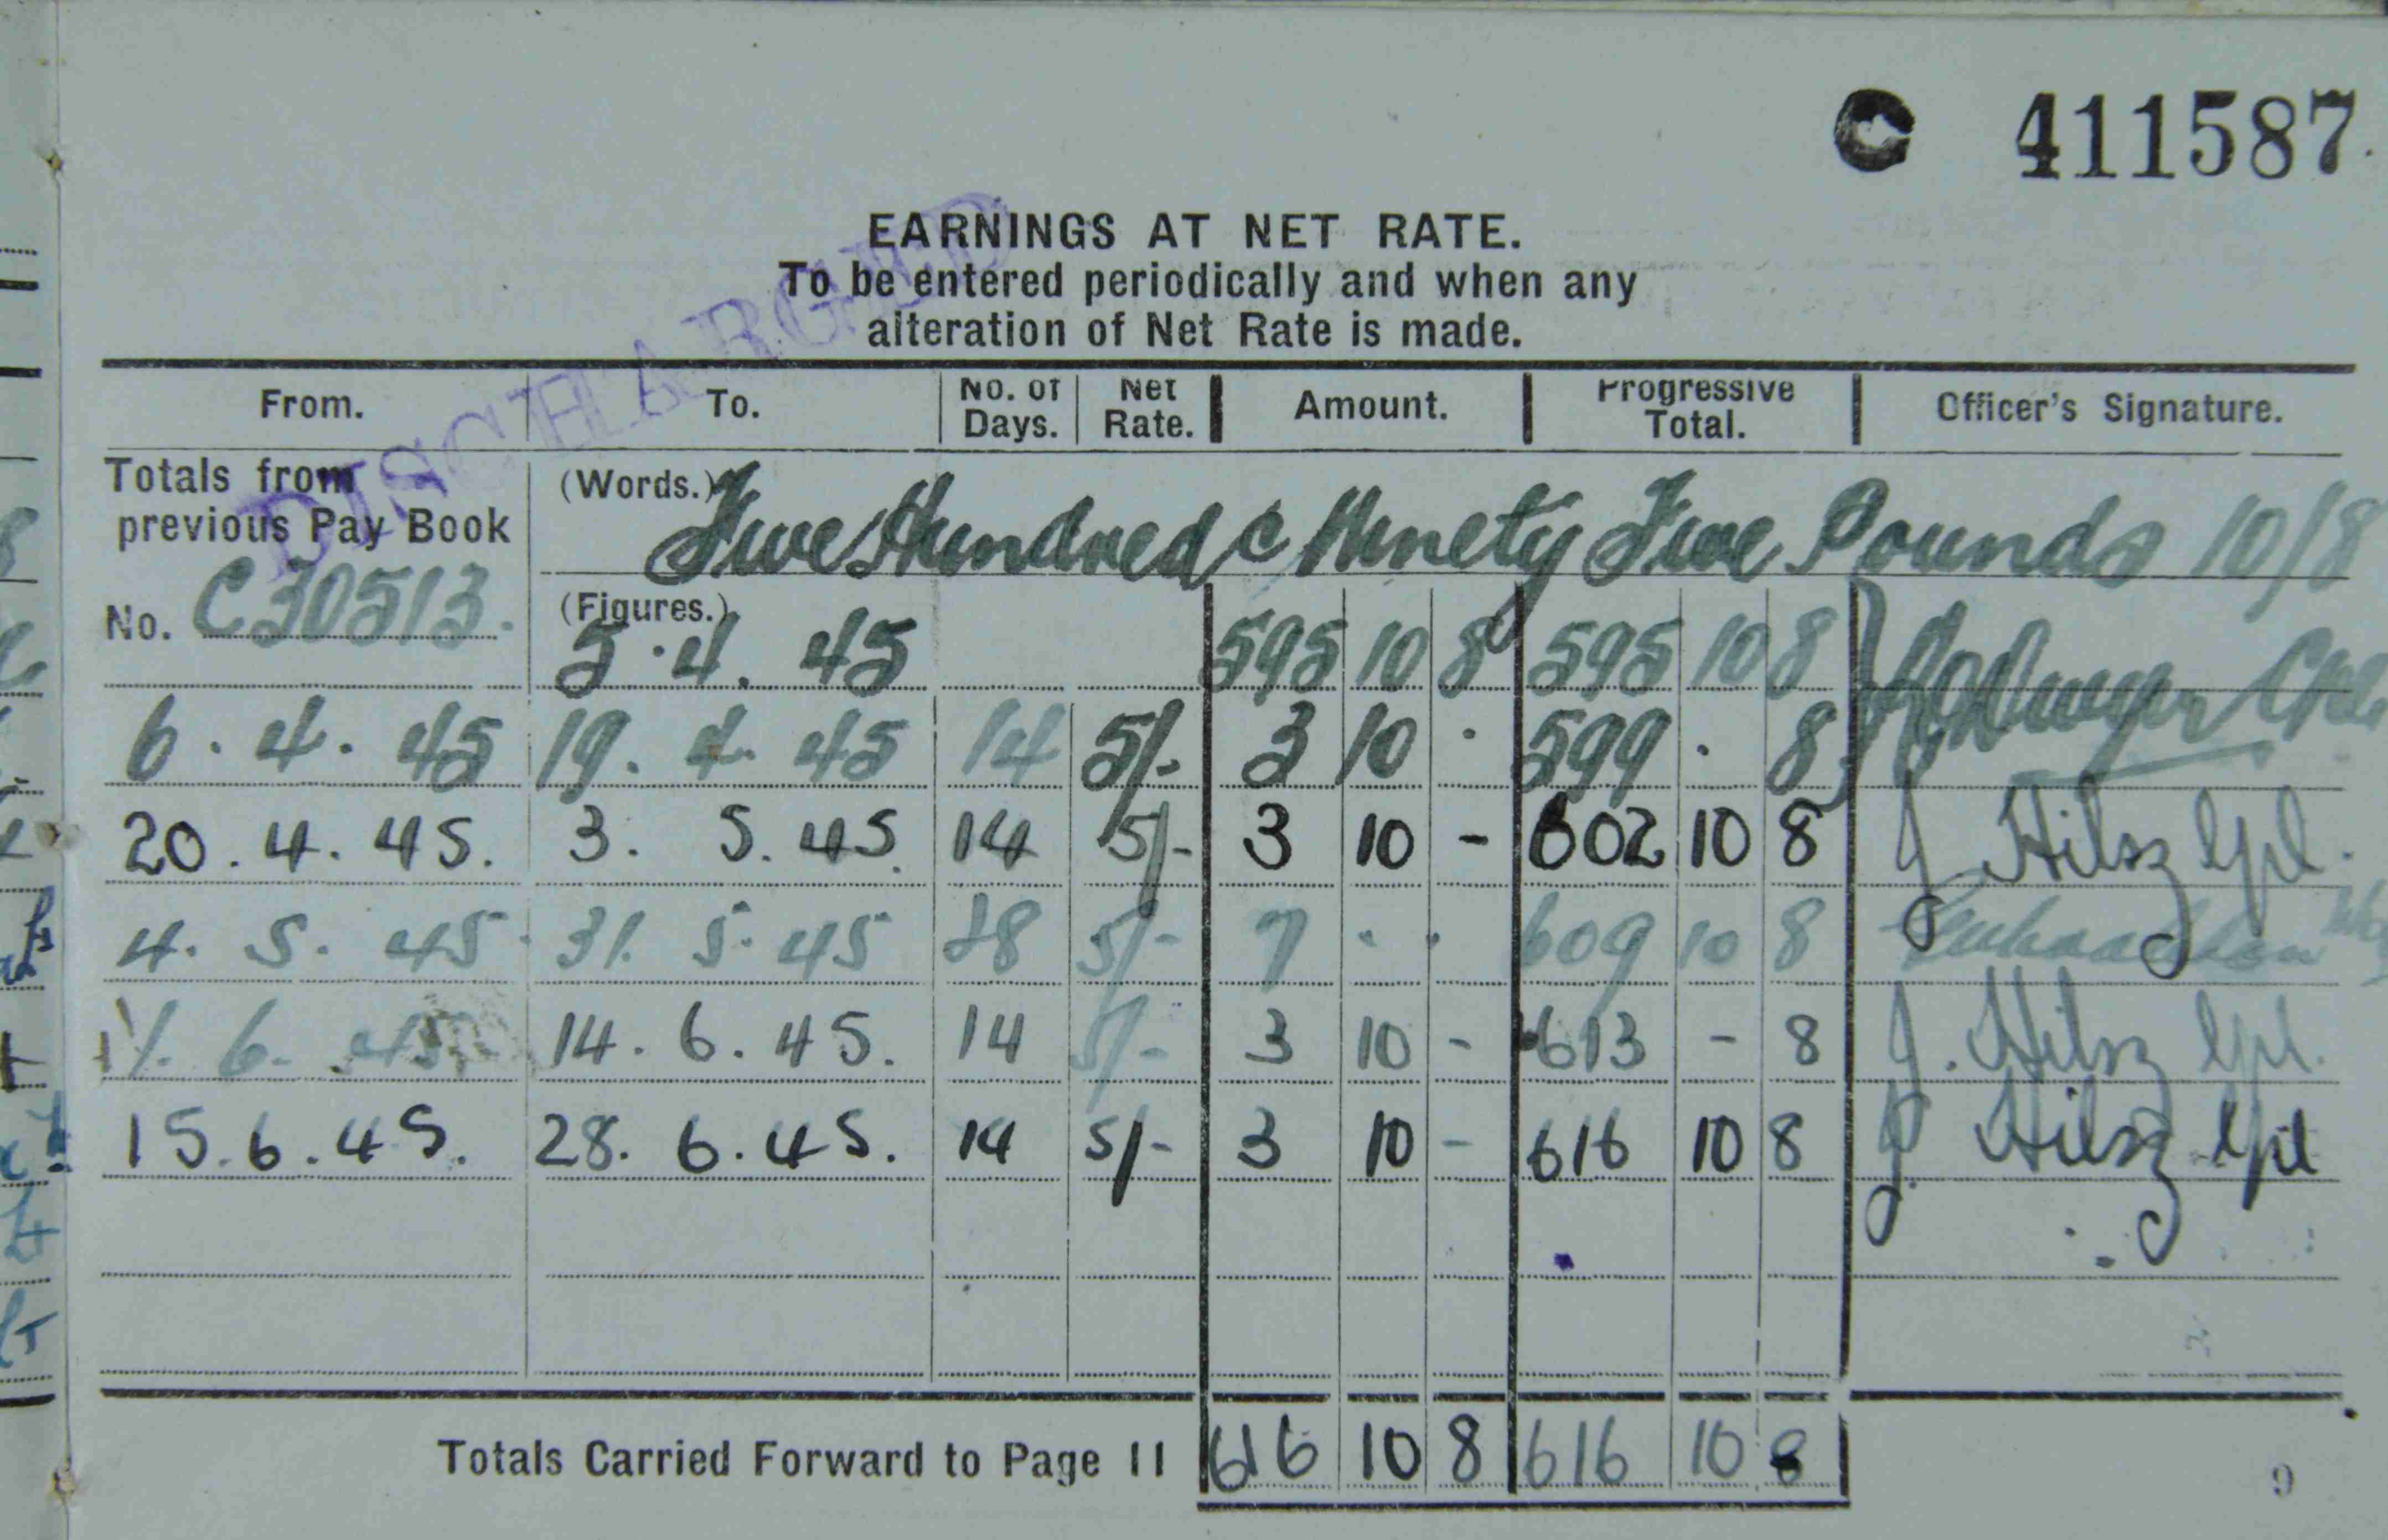 C 411587
EARNINGS AT NET RATE.
To be entered periodically and when any
alteration of Net Rate is made.
DISCHARGED
From. To. No. of Days. Net Rate. Amount. Progressive Total. Officer's Signature.
Totals from (Words.) Five Hundred & Ninety Five Pounds 10/8
previous Pay Book
No. C30513. (Figures.) 5.4.45 595 10 8 595 10 8
6.4.45 19.4.45 14 5/- 3 10 . 599 . 8
20.4.45. 3.5.45. 14 5/- 3 10 - 602 10 8 J Hilsz Cpl.
4.5.45. 31.5.45 28 5/- 7 . . 609 10 8
1.6.45 14.6.45. 14 5/- 3 10 - 613 - 8 J. Hilsz Cpl.
15.6.45. 28.6.45. 14 5/- 3 10 - 616 10 8 J Hilsz Cpl
Totals Carried Forward to Page 11 616 10 8 616 10 8
9